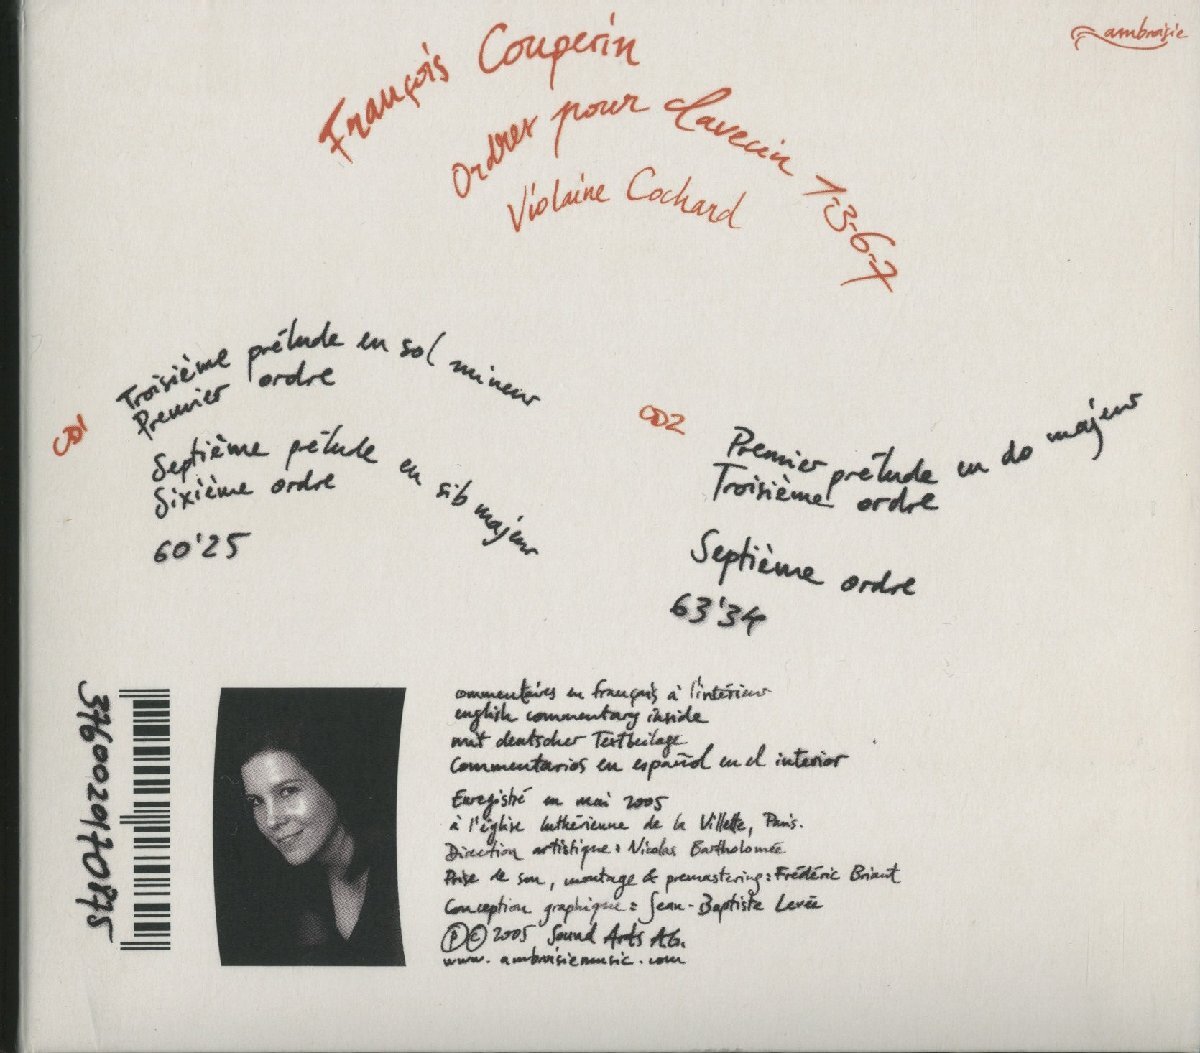 ambroisie
François Couperin
Ordres pour clavecin 1-3-6-7
Violaine Cochard
CD1
Troisième prélude en sol mineur
Premier ordre
Septième prélude en sib majeur
Sixième ordre
60'25
CD2
Premier prélude en do majeur
Troisième ordre
Septième ordre
63'34
3760020170875
commentaires en français à l'intérieur
english commentary inside
mit deutscher Textbeilage
Commentarios en español en el interior
Enregistré en mai 2005
à l'église luthérienne de la Villette, Paris.
Direction artistique : Nicolas Bartholomée
Prise de son, montage & premastering : Frédéric Briant
Conception graphique : Jean-Baptiste Levée
Ⓟ© 2005 Sound Arts AG.
www.ambroisiemusic.com